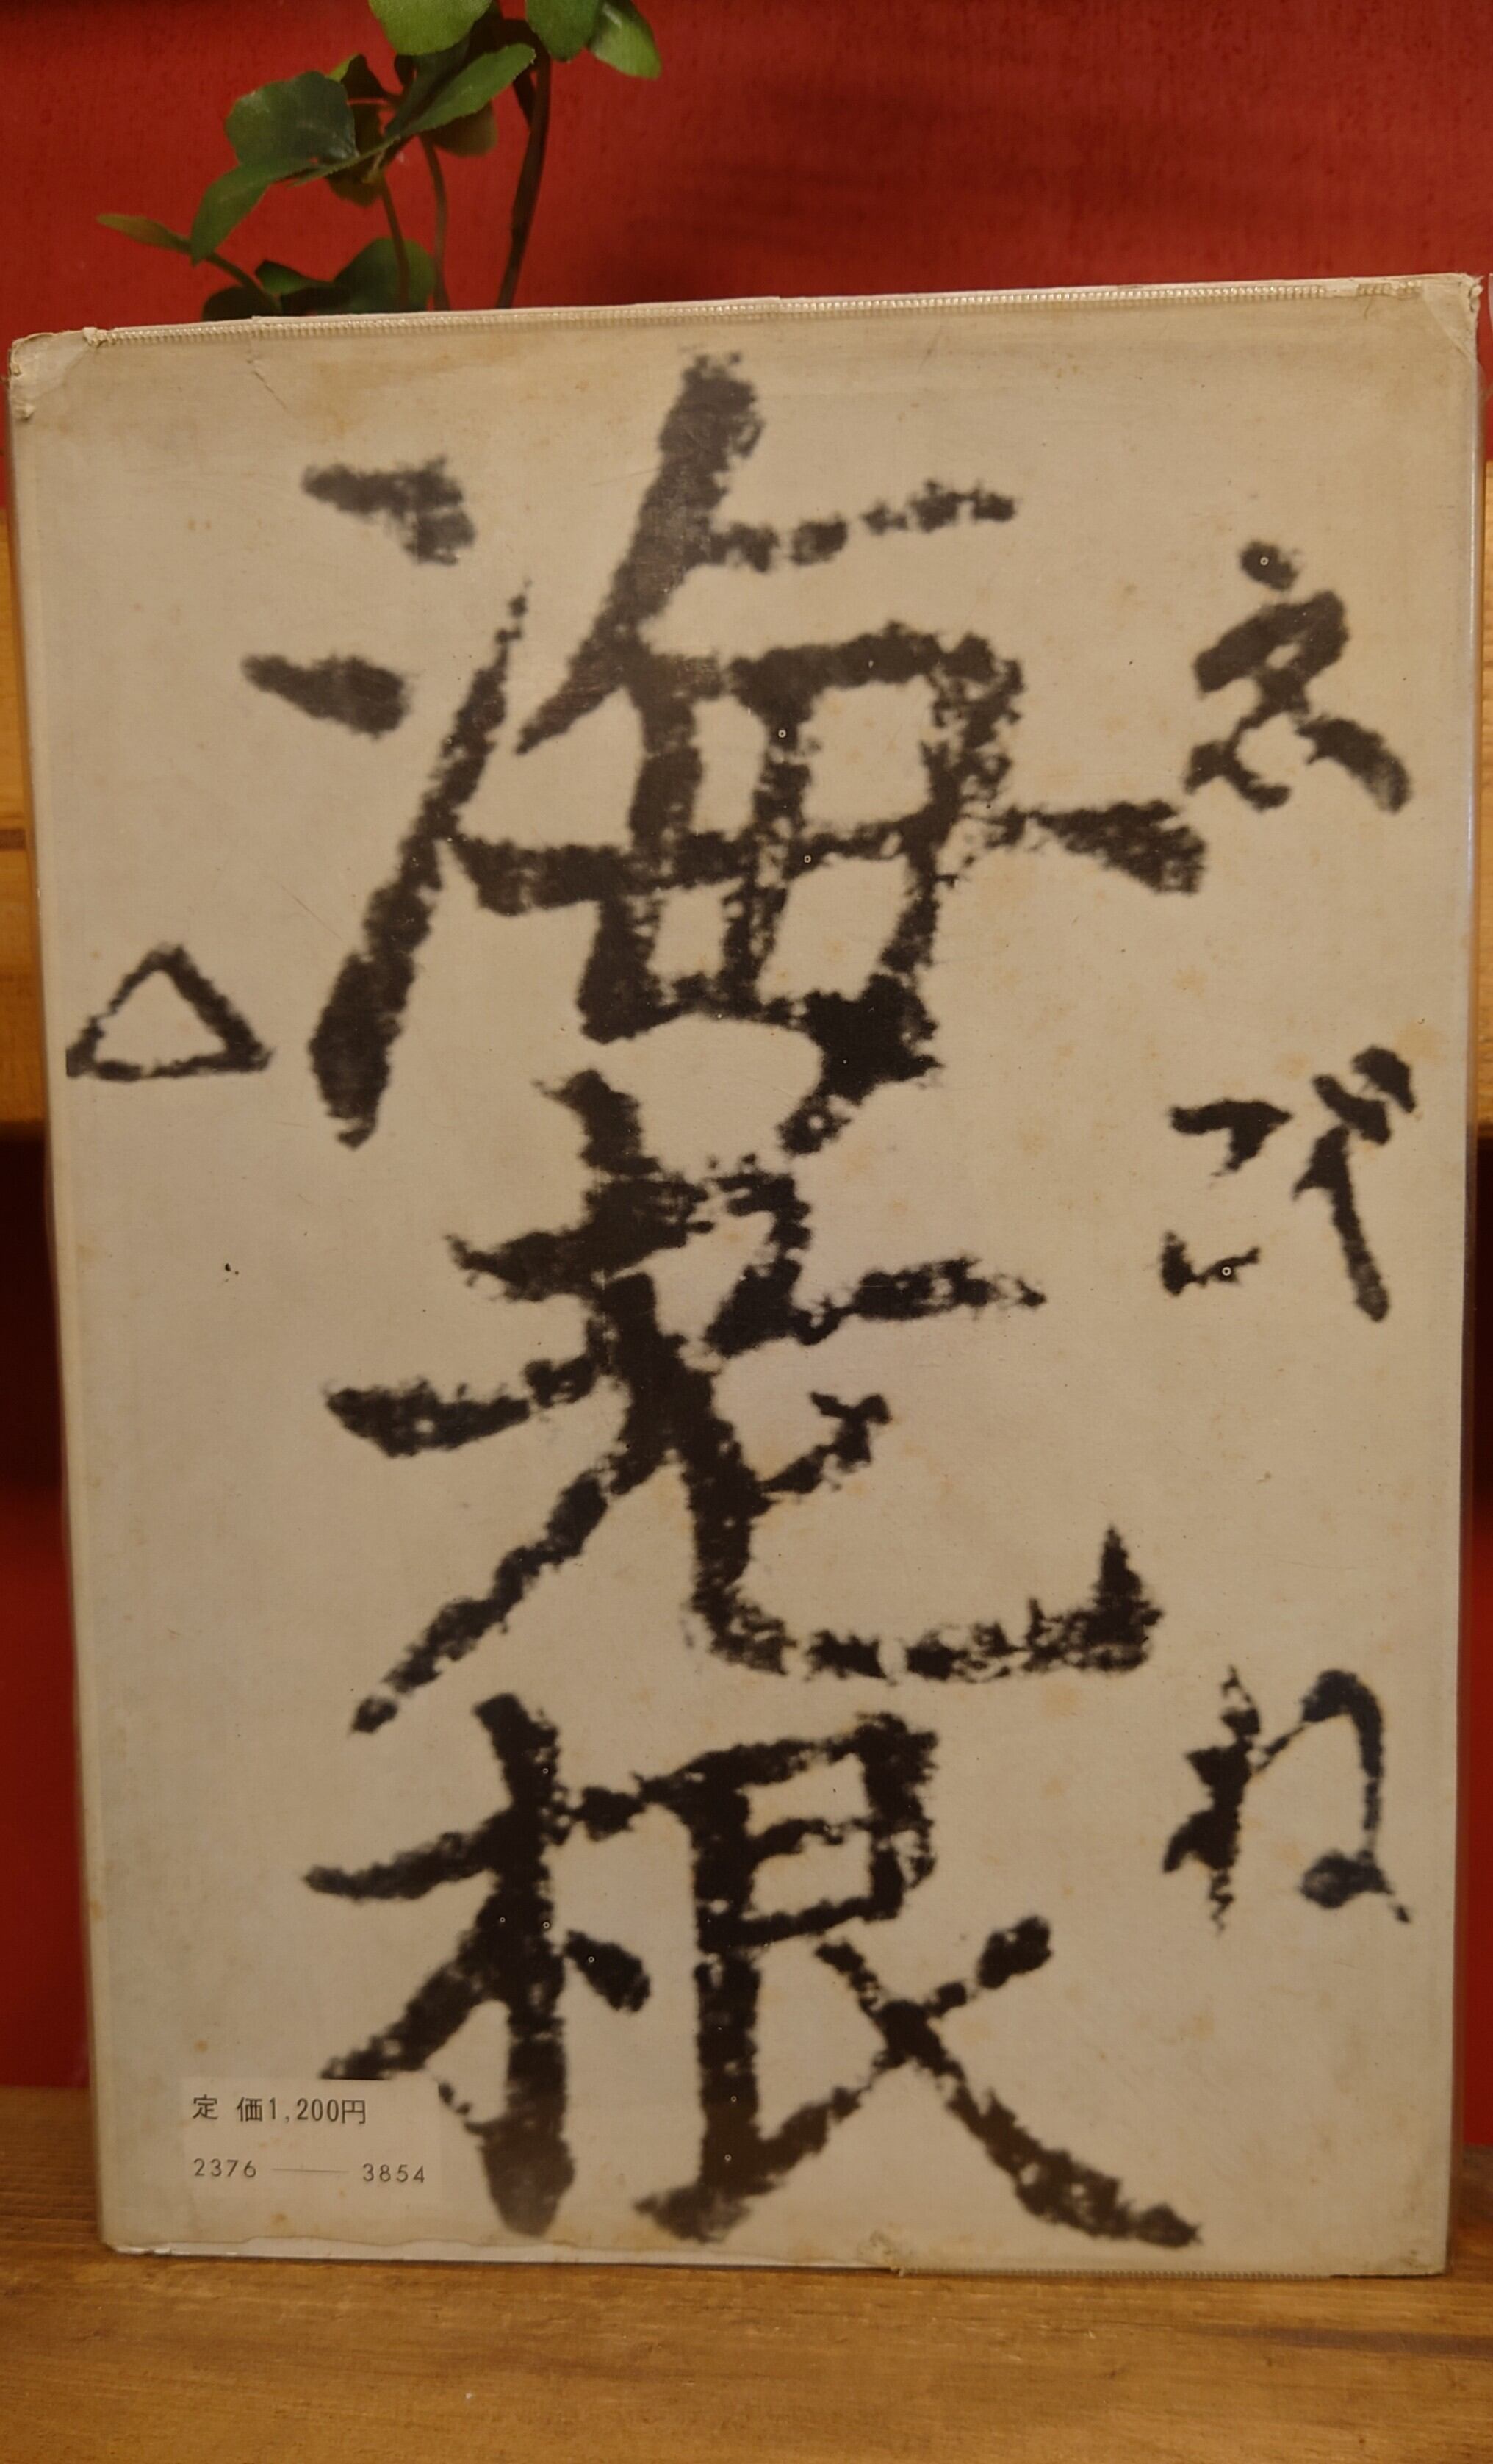 ゑびね
海老根
△
定 価1,200円
2376 —— 3854